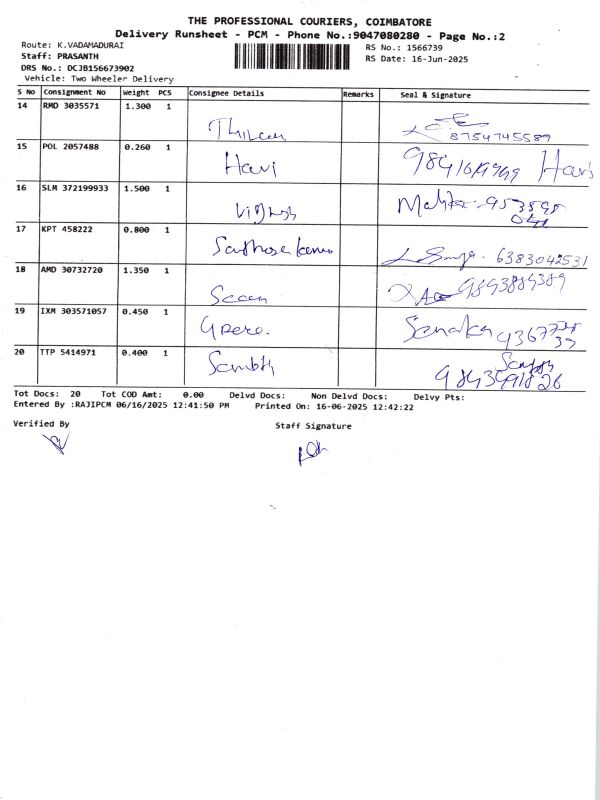 THE PROFESSIONAL COURIERS, COIMBATORE
Delivery Runsheet - PCM - Phone No.:9047080280 - Page No.:2
Route: K.VADAMADURAI
RS No.: 1566739
Staff: PRASANTH
RS Date: 16-Jun-2025
DRS No.: DCJB156673902
Vehicle: Two Wheeler Delivery
S No Consignment No Weight PCS Consignee Details Remarks Seal & Signature
14 RMD 3035571 1.300 1
8754745589
15 POL 2057488 0.260 1 Hari Hari
16 SLM 372199933 1.500 1
17 KPT 458222 0.800 1 6383042531
18 AMD 30732720 1.350 1
19 IXM 303571057 0.450 1
20 TTP 5414971 0.400 1
Tot Docs: 20 Tot COD Amt: 0.00 Delvd Docs: Non Delvd Docs: Delvy Pts:
Entered By :RAJIPCM 06/16/2025 12:41:50 PM Printed On: 16-06-2025 12:42:22
Verified By Staff Signature